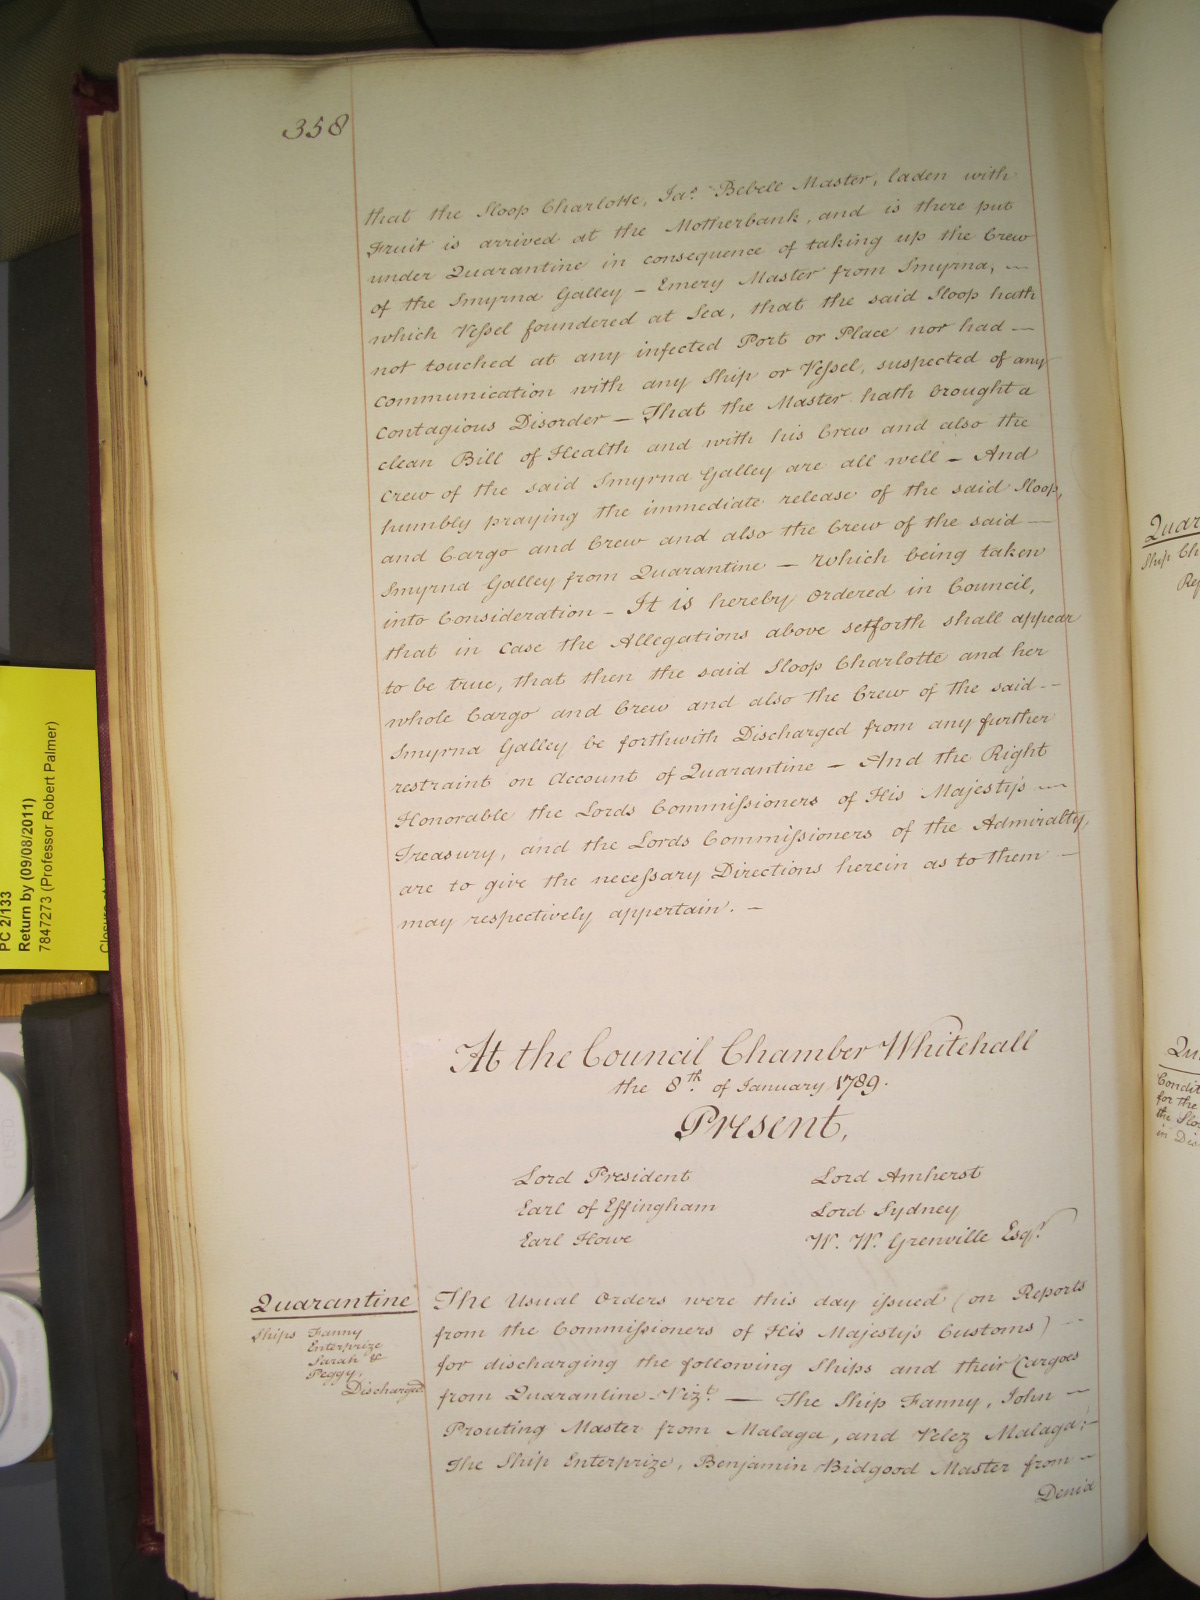 358
that the Sloop Charlotte, Jas. Bebell Master, laden with
Fruit is arrived at the Motherbank, and is there put
under Quarantine in consequence of taking up the Crew
of the Smyrna Galley — Emery Master from Smyrna, —
which Vessel foundered at Sea, that the said Sloop hath
not touched at any infected Port or Place nor had —
Communication with any Ship or Vessel, suspected of any
Contagious Disorder — That the Master hath brought a
clean Bill of Health and with his Crew and also the
Crew of the said Smyrna Galley are all well — And
humbly praying the immediate release of the said Sloop,
and Cargo and Crew and also the Crew of the said —
Smyrna Galley from Quarantine — Which being taken
into Consideration — It is hereby Ordered in Council,
that in Case the Allegations above setforth shall appear
to be true, that then the said Sloop Charlotte and her
whole Cargo and Crew and also the Crew of the said —
Smyrna Galley be forthwith Discharged from any further
restraint on Account of Quarantine — And the Right
Honorable the Lords Commissioners of His Majesty's —
Treasury, and the Lords Commissioners of the Admiralty,
are to give the necessary Directions herein as to them —
may respectively appertain. —
At the Council Chamber Whitehall
the 8th. of January 1789.
Present,
Lord President
Lord Amherst
Earl of Effingham
Lord Sydney
Earl Howe
W. W. Grenville Esqr.
Quarantine
Ships Fanny
Enterprize
Sarah &
Peggy,
Discharged
The Usual Orders were this day issued (on Reports
from the Commissioners of His Majesty's Customs) --
for discharging the following Ships and their Cargoes
from Quarantine Vizt. — The Ship Fanny, John —
Prouting Master from Malaga, and Velez Malaga: —
The Ship Enterprize, Benjamin Bidgood Master from —
Denia
PC 2/133
Return by (09/08/2011)
7847273 (Professor Robert Palmer)
Quar
Ship Ch
Rep
Qu
Condit
for the
the Slo
in Dis